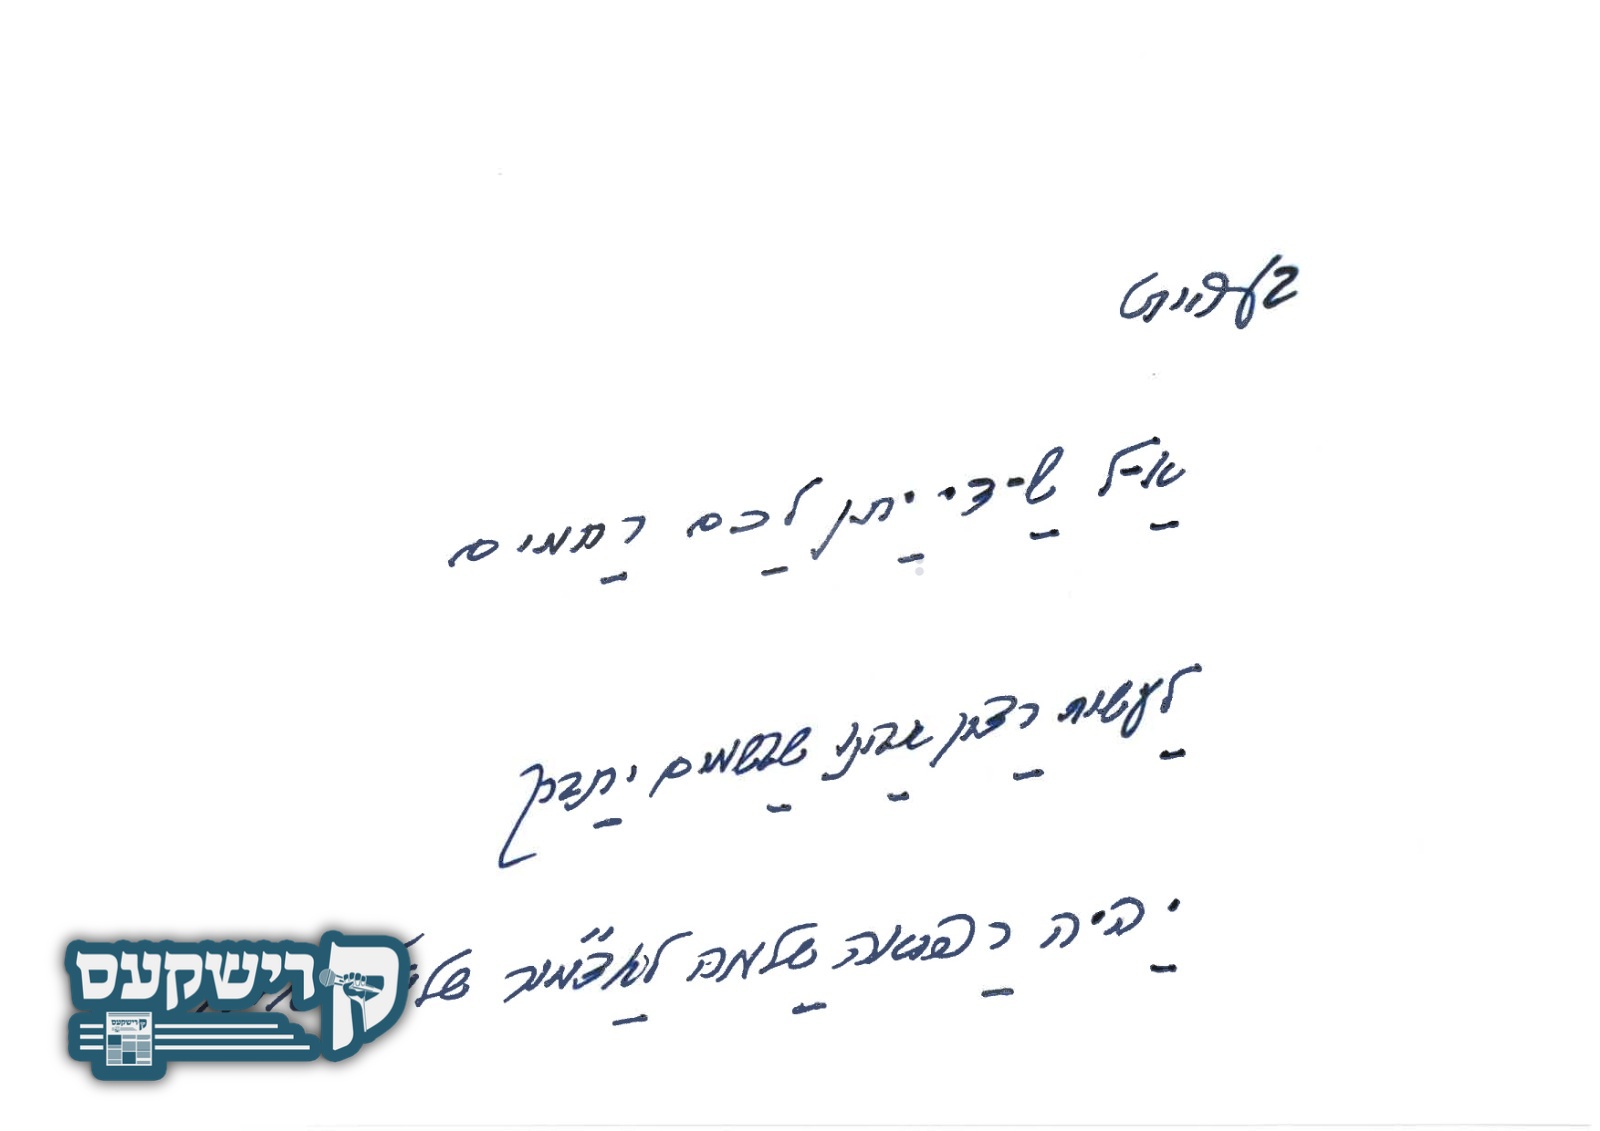 א-ל ש-די יתן לכם רחמים
לעשות רצון אבינו שבשמים יתברך
יהיה רפואה שלמה לאדמו״ר
קרישקעס